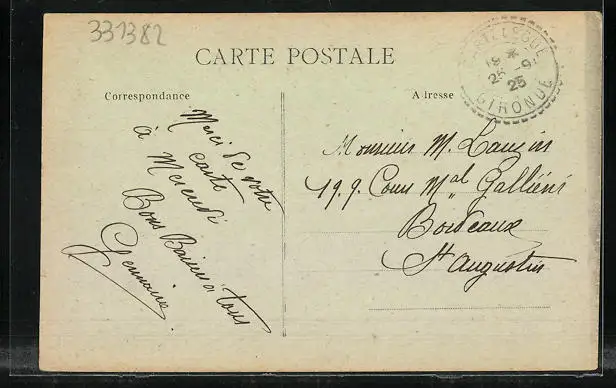 331382
CARTE POSTALE
Correspondance
Adresse
GIRONDE
25
Merci de votre
carte
à Mercredi
Bons Baisers à tous
Germaine
Monsieur M. Lauzin
199. Cours Mal Galliéni
Bordeaux
St Augustin